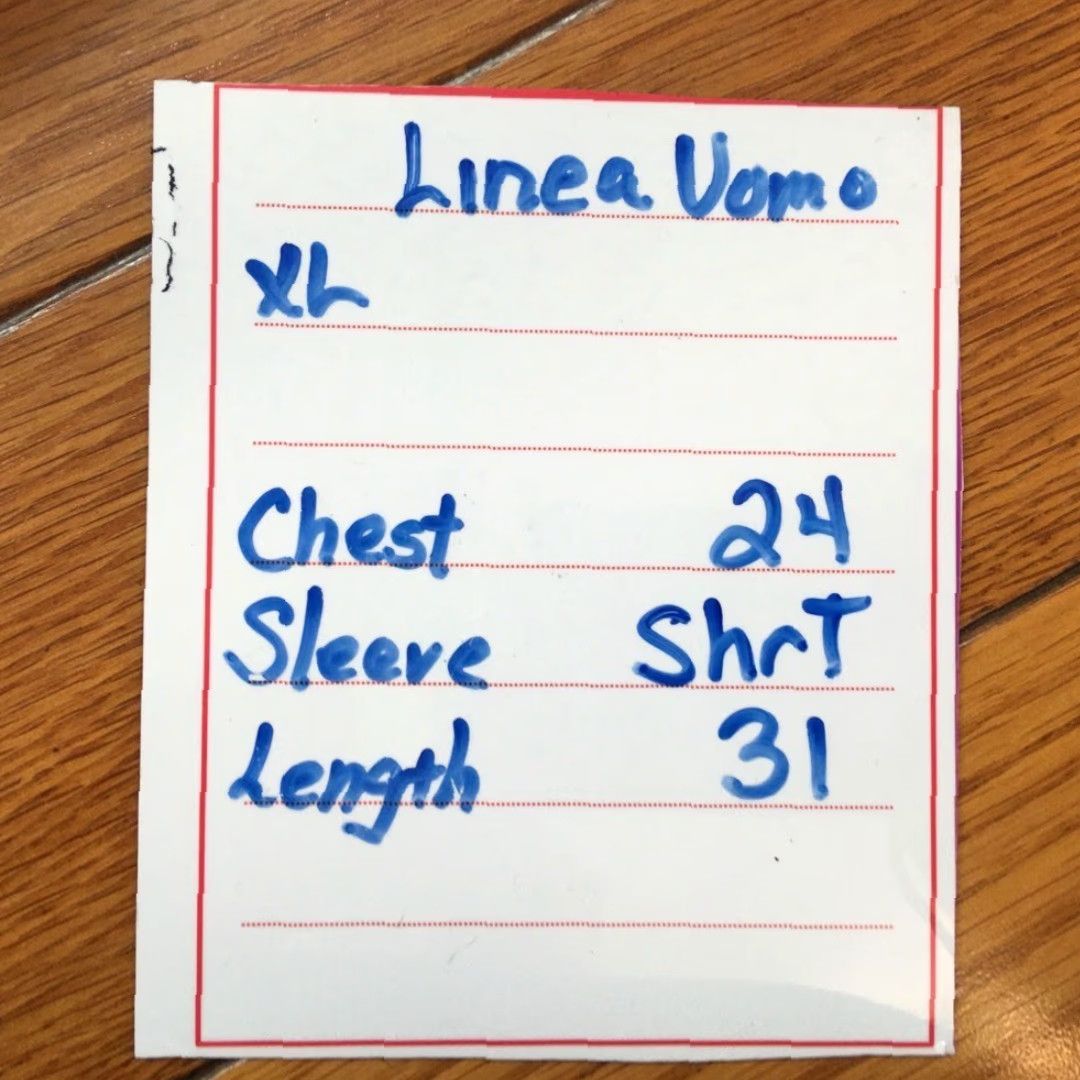 Linea Uomo
XL
Chest 24
Sleeve ShrT
Length 31